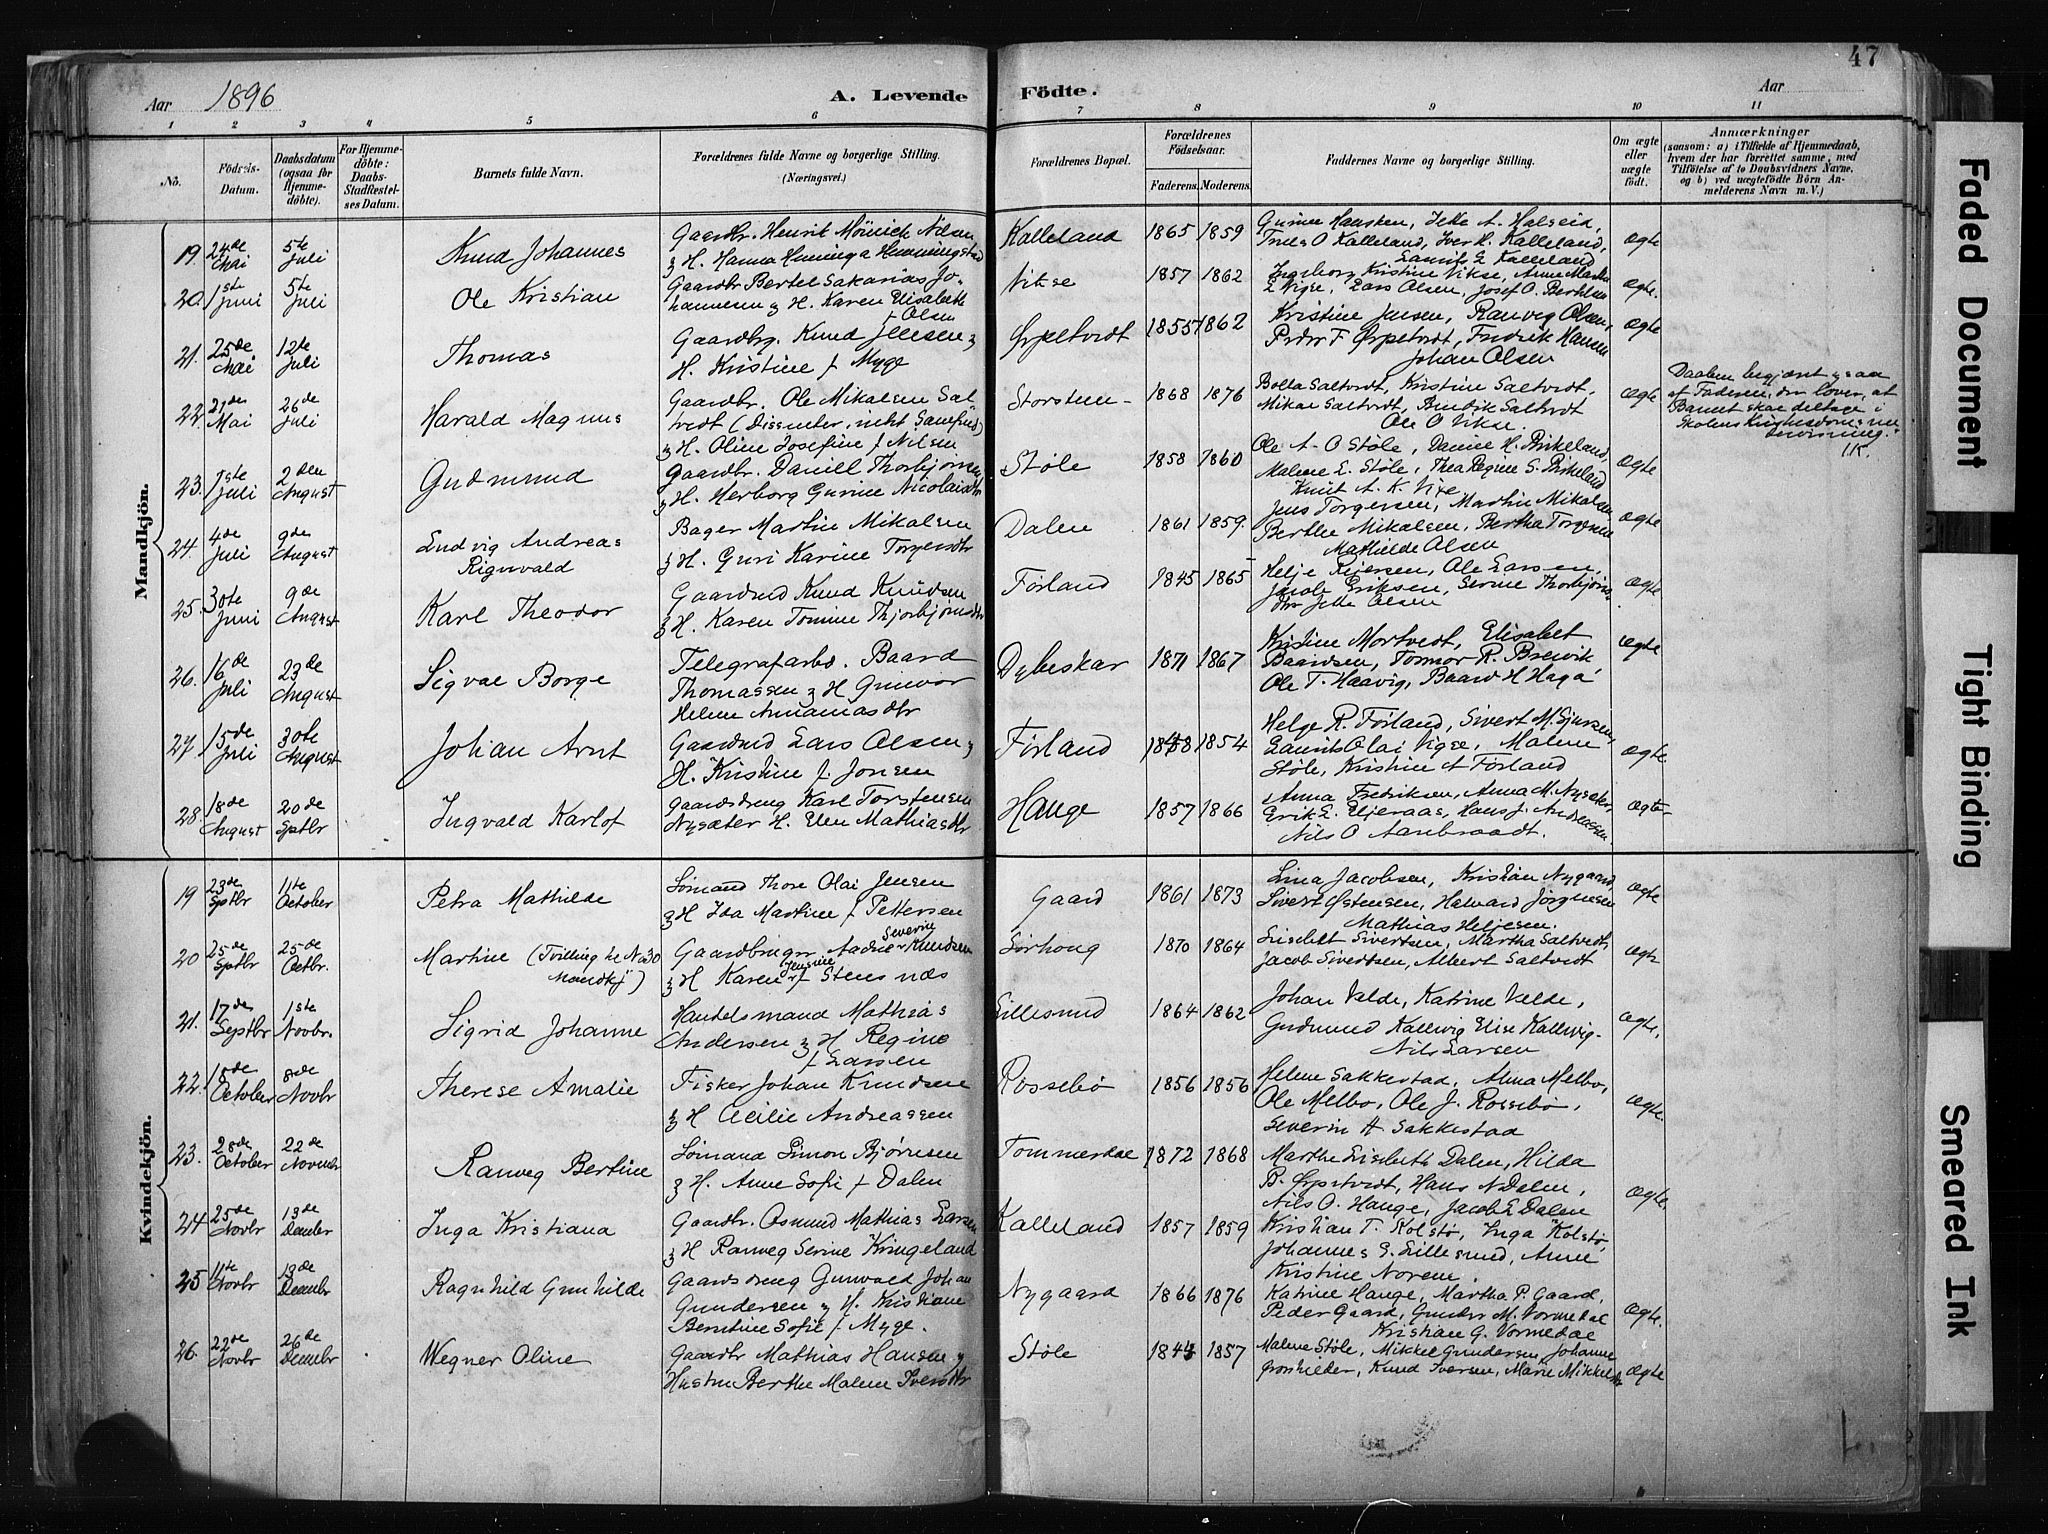 47
Aar 1896 A. Levende Födte. Aar
1 2 3 4 5 6 7 8 9 10 11
No.
Födsels-Datum.
Daabsdatum (ogsaa for Hjemmedöbte).
For Hjemmedöbte: Daabs-Stadfestelses Datum.
Barnets fulde Navn.
Forældrenes fulde Navne og borgerlige Stilling.
(Næringsvei.)
Forældrenes Bopæl.
Forældrenes Födselsaar.
Faderens. Moderens.
Faddernes Navne og borgerlige Stilling.
Om ægte eller uægte födt.
Anmærkninger
(saasom: a) i Tilfælde af Hjemmedaab,
hvem der har forrettet samme, med
Tilföielse af to Daabsvidners Navne,
og b) ved uægtefödte Börn Anmelderens Navn m. V.)
Mandkjön.
19. 24de Mai 5te Juli Knud Johannes
Gaardbr. Henrik Mönich Nilsen
& H. Hanna Henninga Henningstad
Kalleland 1865 1859
Gurine Haasken, Jette A. Halseid,
Truls O Kalleland, Iver H. Kalleland,
Laurits E Kalleland
Ægte
20. 1ste Juni 5te Juli Ole Kristian
Gaardbr Bertel Sakarias Johannesen & H. Karen Elisabeth
f Olsen
Vikse 1857 1862
Ingeborg Kristine Vikse, Anne Marthe
E Vikse, Lars Olsen, Josef O. Bertelsen
Ægte.
21. 25de Mai 12te Juli Thomas
Gaardbrg. Knud Jellesen &
H. Kristine f Myge
Ørpetvedt 1855 1862
Kristine Jensen, Ranveg Olsen,
Peder F Ørpetvedt, Fredrik Hansen
Johan Olsen
Ægte
22. 21de Mai 26de Juli Harald Magnus
Gaardbr. Ole Mikalsen Saltvedt (Dissenter, intet Samfund)
& H. Oline Josefine f Nilsen
Storsteen- 1868 1876
Bolla Saltvedt, Kristine Saltvedt.
Mikal Saltvedt, Bendik Saltvedt
Ole O Vikse.
Ægte
Daaben begjæret ogsaa
af Faderen, der lover, at
Barnet skal deltage i
Skolens Kristendomsundervisning.
23. 1ste Juli 2den August Gudmund
Gaardbr. Daniel Thorbjörnsen
& H. Herborg Gurine Nicolaisdtr
Støle 1858 1860
Ole A. O Støle, Daniel H. Birkeland,
Malene E. Støle, Thea Regine S. Birkeland
Knut A. K. Vixe
Ægte
24. 4de Juli 9de August Ludvig Andreas
Rignvald
Bager Martin Mikalsen
& H. Guri Karine Torgersdtr
Dalen 1861 1859.
Jens Torgersen, Martin Mikalsen
Berthe Mikalsen, Bertha Torgersen
Mathilde Olsen
Ægte
25. 30te Juni 9de August Karl Theodor
Gaardmd Knud Knudsen
& H. Karen Tomine Thjorbjörnsdtr
Førland 1845 1865
Helje Reiersen, Ole Larsen,
Jacob Eriksen, Serine Thorbjörnsdtr Jette Olsen
Ægte.
26. 16de Juli 23de August Sigval Borge
Telegrafarbd. Baard
Thomassen & H Gunvor
Helene Annaniasdtr
Dybeskar 1871 1867
Kristine Mortvedt, Elisabet
Baardsen, Tormor R. Brevik,
Ole T. Haavig, Baard H Haga
Ægte
27. 15de Juli 30te August Johan Arnt
Gaardmd Lars Olsen &
H. Kristine f. Jonsen
Førland 1848 1854
Helge R. Førland, Sivert M. Sjursen,
Laurits Olai Vigse, Malene
Støle, Kristine A Førland
Ægte
28. 18de August 20de Septbr Ingvald Karlof
Gaardsdreng Karl Torstensen
Nysæter H. Elen Mathiasdtr
Hauge 1857 1866
Anna Fredriksen, Anna M. Nysæter,
Erik E. Eljeraas, Hans J. Andreassen
Nils O Aanbraadt.
Ægte
Kvindekjön.
19 23de Septbr 11te October Petra Mathilde
Sømand Thore Olai Jensen
& H Ida Martine f Pettersen
Gaard 1861 1873
Lina Jacobsen, Kristian Nygaard,
Sivert Østensen, Halvard Jörgensen
Mathias Heljesen.
Ægte
20 25de Septbr 25de Octbr. Martine (Tvilling til No 30
Mandkj)
Gaardbruger Aadne Severin Knudsen
& H Karen Jensine f Stensnæs
Sørhoug 1870 1864
Lisebet Sivertsen, Martha Saltvedt,
Jacob Sivertsen, Albert Saltvedt
Ægte
21. 17de Septbr 1ste Novbr. Sigrid Johanne
Handelsmand Mathias
Andersen & H Regine
f Larsen
Lillesund 1864 1862
Johan Velde, Katrine Velde,
Gudmund Kallevig Elise Kallevig-
Nils Larsen
Ægte.
22. 18de October 8de Novbr Therese Amalie
Fisker Johan Knudsen
& H Cecilie Andreassen
Rossebø 1856 1856
Helene Sakkestad, Anna Melbo,
Ole Melbo, Ole J. Rossebø,
Severin H Sakkestad
Ægte.
23. 28de October 22de Novembr Ranveg Bertine
Sømand Simon Bjørnsen
& H. Anne Sofie f Dalen
Tommerdal 1872 1868
Marthe Lisebeth Dalen, Hilda
B. Ørpetvedt, Hans N Dalen,
Nils O. Hauge, Jacob E Dalen
Ægte.
24 25de Novbr 13de Decmbr Inga Kristiana
Gaardbr. Osmund Mathias Larsen
& H Ranveg Serine Kringeland
Kalleland 1857 1859
Kristian T. Kolstø, Inga Kolstø,
Johannes G. Lillesund, Anne
Kristine Norene.
25 11te Novbr 13de Decmbr Ragnhild Gunhilde
Gaardsdreng Gunvald Johan
Gundersen & H. Kristiane
Berntine Sofie f. Myge.
Nygaard 1866 1876
Katrine Hauge, Martha P. Gaard,
Peder Gaard, Gunder M. Vormedal
Kristian G. Vormedal
Ægte.
26. 22de Novbr 26de Decmbr Wegner Oline
Gaardbr Mathias Hansen &
Hustru Berthe Malene Iversdtr
Støle 1844 1857
Malene Støle, Mikkel Gundersen, Johanne
Knud Iversen, Marie Mikkelsdtr
Ægte
Faded Document
Tight Binding
Smeared Ink